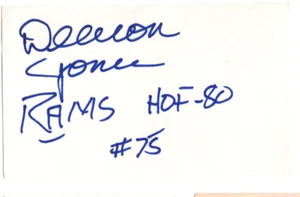 Deacon
Jones
RAMS HOF-80
#75